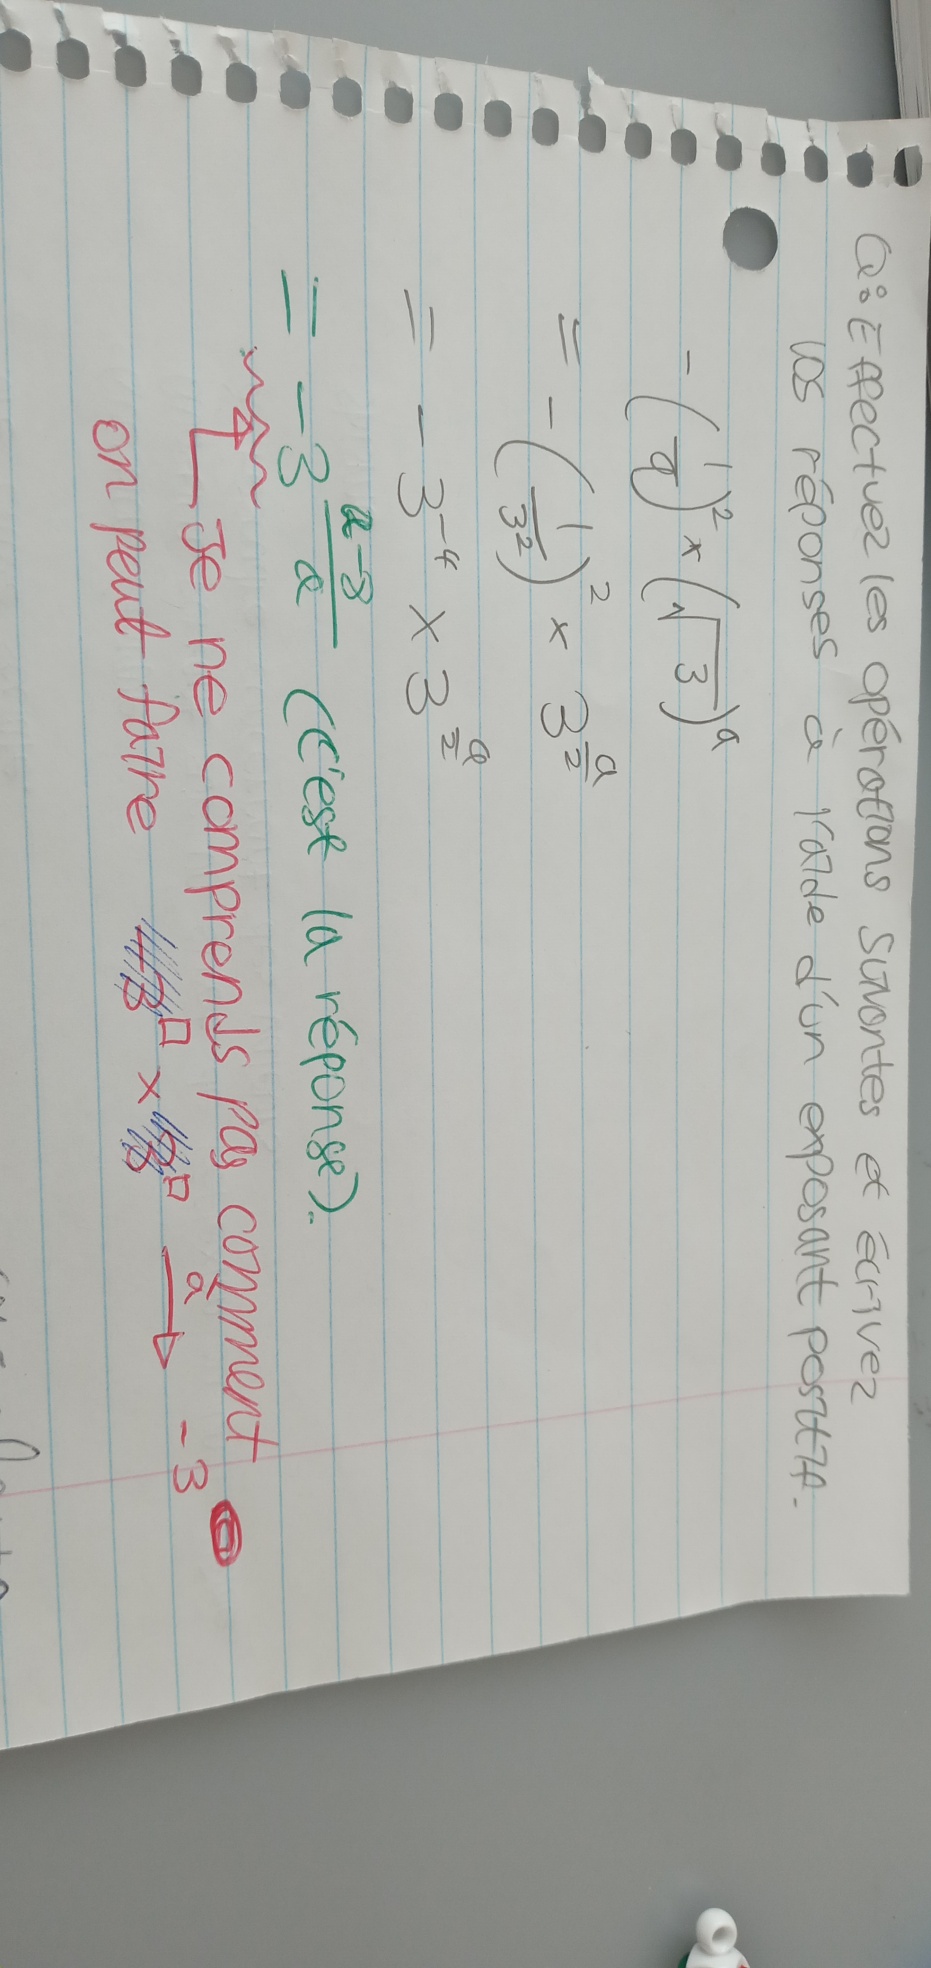 Q: Effectuez les opérations suivantes et écrivez
vos réponses à l'aide d'un exposant positif.
- (1/9)² × (√3)ᵃ
= - (1/3²)² × 3^(a/2)
= - 3⁻⁴ × 3^(a/2)
= - 3^((a-8)/2) (C'est la réponse).
Je ne comprends pas comment
on peut faire 3^□ × 3^□ → à -3^□